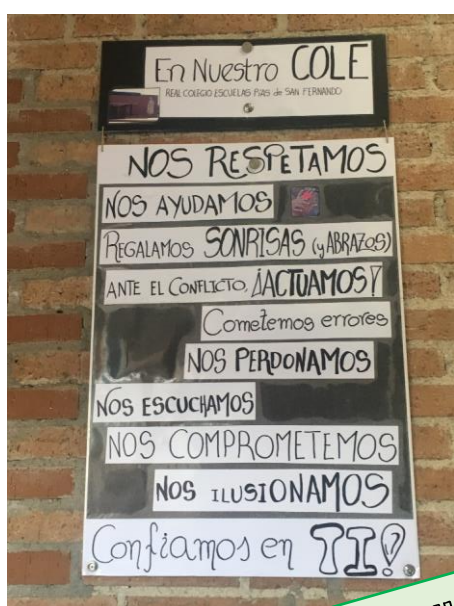 En Nuestro COLE
REAL COLEGIO ESCUELAS PIAS de SAN FERNANDO
NOS RESPETAMOS
NOS AYUDAMOS
REGALAMOS SONRISAS (y ABRAZOS)
ANTE EL CONFLICTO, ¡ACTUAMOS!
Cometemos errores
NOS PERDONAMOS
NOS ESCUCHAMOS
NOS COMPROMETEMOS
NOS ILUSIONAMOS
Confiamos en TI!